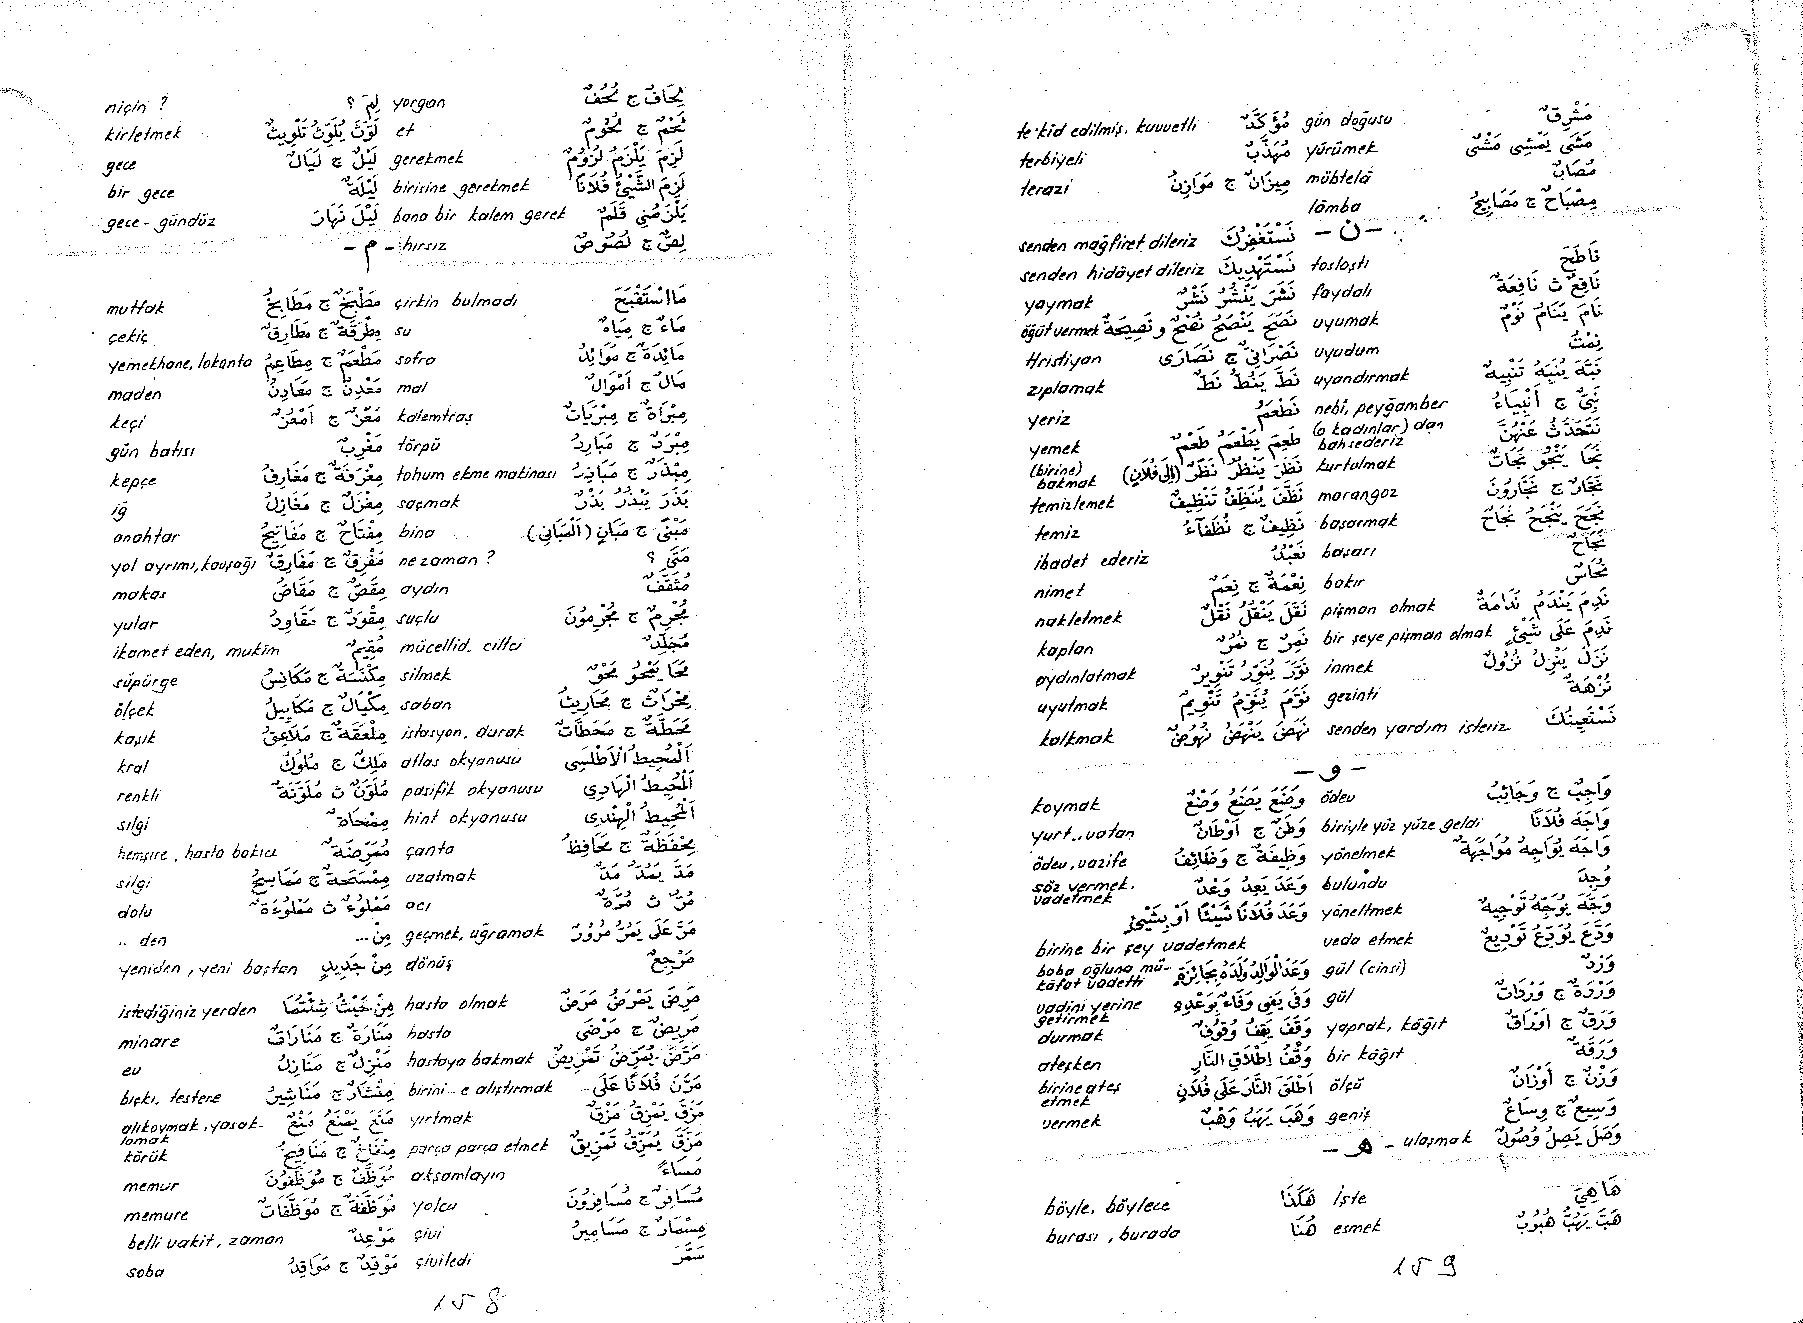 لِحَافٌ ج لُحُفٌ yorgan
لَحْمٌ ج لُحُومٌ et
لَزِمَ يَلْزَمُ لُزُومٌ gerekmek
لَزِمَ الشَّيْئُ فُلَانًا birisine gerekmek
يَلْزَمُنِي قَلَمٌ bana bir kalem gerek
لِصٌّ ج لُصُوصٌ hırsız
لِمَ ؟ niçin ?
لَوَّثَ يُلَوِّثُ تَلْوِيثٌ kirletmek
لَيْلٌ ج لَيَالٌ gece
لَيْلَةٌ bir gece
لَيْلَ نَهَارَ gece - gündüz
- م -
مَااسْتَقْبَحَ çirkin bulmadı
مَاءٌ ج مِيَاهٌ su
مَائِدَةٌ ج مَوَائِدُ sofra
مَالٌ ج أَمْوَالٌ mal
مِبْرَاةٌ ج مِبْرَيَاتٌ kalemtraş
مِبْرَدٌ ج مَبَارِدُ törpü
مِبْذَرٌ ج مَبَاذِرُ tohum ekme makinası
بَذَرَ يَبْذُرُ بَذْرٌ saçmak
مَبْنًى ج مَبَانٍ (اَلْمَبَانِي) bina
مَتَى ؟ ne zaman ?
مُثَقَّفٌ aydın
مُجْرِمٌ ج مُجْرِمُونَ suçlu
مُجَلِّدٌ mücellid, ciltci
مَحَا يَمْحُو مَحْوٌ silmek
مِحْرَاثٌ ج مَحَارِيثُ saban
مَحَطَّةٌ ج مَحَطَّاتٌ istasyon, durak
اَلْمُحِيطُ الْأَطْلَسِى atlas okyanusu
اَلْمُحِيطُ الْهَادِى pasifik okyanusu
اَلْمُحِيطُ الْهِنْدِى hint okyanusu
مِحْفَظَةٌ ج مَحَافِظُ çanta
مَدَّ يَمُدُّ مَدٌّ uzatmak
مُرٌّ ث مُرَّةٌ acı
مَرَّ عَلَى يَمُرُّ مُرُورٌ geçmek, uğramak
مَرْجِعٌ dönüş
مَرِضَ يَمْرَضُ مَرَضٌ hasta olmak
مَرِيضٌ ج مَرْضَى hasta
مَرَّضَ يُمَرِّضُ تَمْرِيضٌ hastaya bakmak
مَرَّنَ فُلَانًا عَلَى... birini ... e alıştırmak
مَزَقَ يَمْزِقُ مَزْقٌ yırtmak
مَزَّقَ يُمَزِّقُ تَمْزِيقٌ parça parça etmek
مَسَاءً akşamlayın
مُسَافِرٌ ج مُسَافِرُونَ yolcu
مِسْمَارٌ ج مَسَامِيرُ çivi
سَمَّرَ çiviledi
مَطْبَخٌ ج مَطَابِخُ mutfak
مِطْرَقَةٌ ج مَطَارِقُ çekiç
مَطْعَمٌ ج مَطَاعِمُ yemekhane, lokanta
مَعْدِنٌ ج مَعَادِنُ maden
مَعْزٌ ج أَمْعُزٌ keçi
مَغْرِبٌ gün batısı
مِغْرَفَةٌ ج مَغَارِفُ kepçe
مِغْزَلٌ ج مَغَازِلُ iğ
مِفْتَاحٌ ج مَفَاتِيحُ anahtar
مَفْرِقٌ ج مَفَارِقُ yol ayrımı, kavşağı
مِقَصٌّ ج مَقَاصُّ makas
مِقْوَدٌ ج مَقَاوِدُ yular
مُقِيمٌ ikamet eden, mukîm
مِكْنَسَةٌ ج مَكَانِسُ süpürge
مِكْيَالٌ ج مَكَايِيلُ ölçek
مِلْعَقَةٌ ج مَلَاعِقُ kaşık
مَلِكٌ ج مُلُوكٌ kral
مُلَوَّنٌ ث مُلَوَّنَةٌ renkli
مِمْحَاةٌ silgi
مُمَرِّضَةٌ hemşire, hasta bakıcı
مِمْسَحَةٌ ج مَمَاسِحُ silgi
مَمْلُوءٌ ث مَمْلُوءَةٌ dolu
مِنْ... .. den
مِنْ جَدِيدٍ yeniden, yeni baştan
مِنْ حَيْثُ شِئْتُمَا istediğiniz yerden
مَنَارَةٌ ج مَنَارَاتٌ minare
مَنْزِلٌ ج مَنَازِلُ ev
مِنْشَارٌ ج مَنَاشِيرُ bıçkı, testere
مَنَعَ يَمْنَعُ مَنْعٌ alıkoymak, yasaklamak
مِنْفَاخٌ ج مَنَافِيخُ körük
مُوَظَّفٌ ج مُوَظَّفُونَ memur
مُوَظَّفَةٌ ج مُوَظَّفَاتٌ memure
مَوْعِدٌ belli vakit, zaman
مَوْقِدٌ ج مَوَاقِدُ soba
158
مَشْرِقٌ gün doğusu
مَشَى يَمْشِى مَشْىٌ yürümek
مُصَابٌ mübtelâ
مِصْبَاحٌ ج مَصَابِيحُ lâmba
مُؤَكَّدٌ te'kîd edilmiş, kuvvetli
مُهَذَّبٌ terbiyeli
مِيزَانٌ ج مَوَازِنُ terazi
- ن -
نَاطَحَ toslaştı
نَافِعٌ ث نَافِعَةٌ faydalı
نَامَ يَنَامُ نَوْمٌ uyumak
نِمْتُ uyudum
نَبَّهَ يُنَبِّهُ تَنْبِيهٌ uyandırmak
نَبِىٌّ ج أَنْبِيَاءُ nebî, peyğamber
نَتَحَدَّثُ عَنْهُنَّ (o kadınlar) dan bahsederiz
نَجَا يَنْجُو نَجَاتٌ kurtulmak
نَجَّارٌ ج نَجَّارُونَ marangoz
نَجَحَ يَنْجَحُ نَجَاحٌ başarmak
نَجَاحٌ başarı
نُحَاسٌ bakır
نَدِمَ يَنْدَمُ نَدَامَةٌ pişman olmak
نَدِمَ عَلَى شَيْئٍ bir şeye pişman olmak
نَزَلَ يَنْزِلُ نُزُولٌ inmek
نُزْهَةٌ gezinti
نَسْتَعِينُكَ senden yardım isteriz
نَسْتَغْفِرُكَ senden mağfiret dileriz
نَسْتَهْدِيكَ senden hidâyet dileriz
نَشَرَ يَنْشُرُ نَشْرٌ yaymak
نَصَحَ يَنْصَحُ نُصْحٌ و نَصِيحَةٌ öğüt vermek
نَصْرَانِىٌّ ج نَصَارَى Hristiyan
نَطَّ يَنُطُّ نَطٌّ zıplamak
نَطْعَمُ yeriz
طَعِمَ يَطْعَمُ طَعْمٌ yemek
نَظَرَ يَنْظُرُ نَظَرٌ (إِلَى فُلَانٍ) (birine) bakmak
نَظَّفَ يُنَظِّفُ تَنْظِيفٌ temizlemek
نَظِيفٌ ج نُظَفَآءُ temiz
نَعْبُدُ ibadet ederiz
نِعْمَةٌ ج نِعَمٌ nimet
نَقَلَ يَنْقُلُ نَقْلٌ nakletmek
نَمِرٌ ج نُمُرٌ kaplan
نَوَّرَ يُنَوِّرُ تَنْوِيرٌ aydınlatmak
نَوَّمَ يُنَوِّمُ تَنْوِيمٌ uyutmak
نَهَضَ يَنْهَضُ نُهُوضٌ kalkmak
- و -
وَاجِبٌ ج وَجَائِبُ ödev
وَاجَهَ فُلَانًا biriyle yüz yüze geldi
وَاجَهَ يُوَاجِهُ مُوَاجَهَةٌ yönelmek
وُجِدَ bulundu
وَجَّهَ يُوَجِّهُ تَوْجِيهٌ yöneltmek
وَدَّعَ يُوَدِّعُ تَوْدِيعٌ veda etmek
وَرْدٌ gül (cinsi)
وَرْدَةٌ ج وَرْدَاتٌ gül
وَرَقٌ ج أَوْرَاقٌ yaprak, kâğıt
وَرَقَةٌ bir kâğıt
وَزْنٌ ج أَوْزَانٌ ölçü
وَسِيعٌ ج وِسَاعٌ geniş
وَصَلَ يَصِلُ وُصُولٌ ulaşmak
وَضَعَ يَضَعُ وَضْعٌ koymak
وَطَنٌ ج أَوْطَانٌ yurt, vatan
وَظِيفَةٌ ج وَظَائِفُ ödev, vazife
وَعَدَ يَعِدُ وَعْدٌ söz vermek, vadetmek
وَعَدَ فُلَانًا شَيْئًا أَوْ بِشَيْئٍ
birine bir şey vadetmek
وَعَدَ الْوَالِدُ وَلَدَهُ بِجَائِزَةٍ baba oğluna mükâfat vadetti
وَفَى يَفِى وَفَاءً بِوَعْدِهِ vadini yerine getirmek
وَقَفَ يَقِفُ وُقُوفٌ durmak
وَقْفُ إِطْلَاقِ النَّارِ ateşken
أَطْلَقَ النَّارَ عَلَى فُلَانٍ birine ateş etmek
وَهَبَ يَهَبُ وَهْبٌ vermek
- هـ -
هَا هِىَ işte
هَبَّ يَهُبُّ هُبُوبٌ esmek
هَكَذَا böyle, böylece
هُنَا burası, burada
159